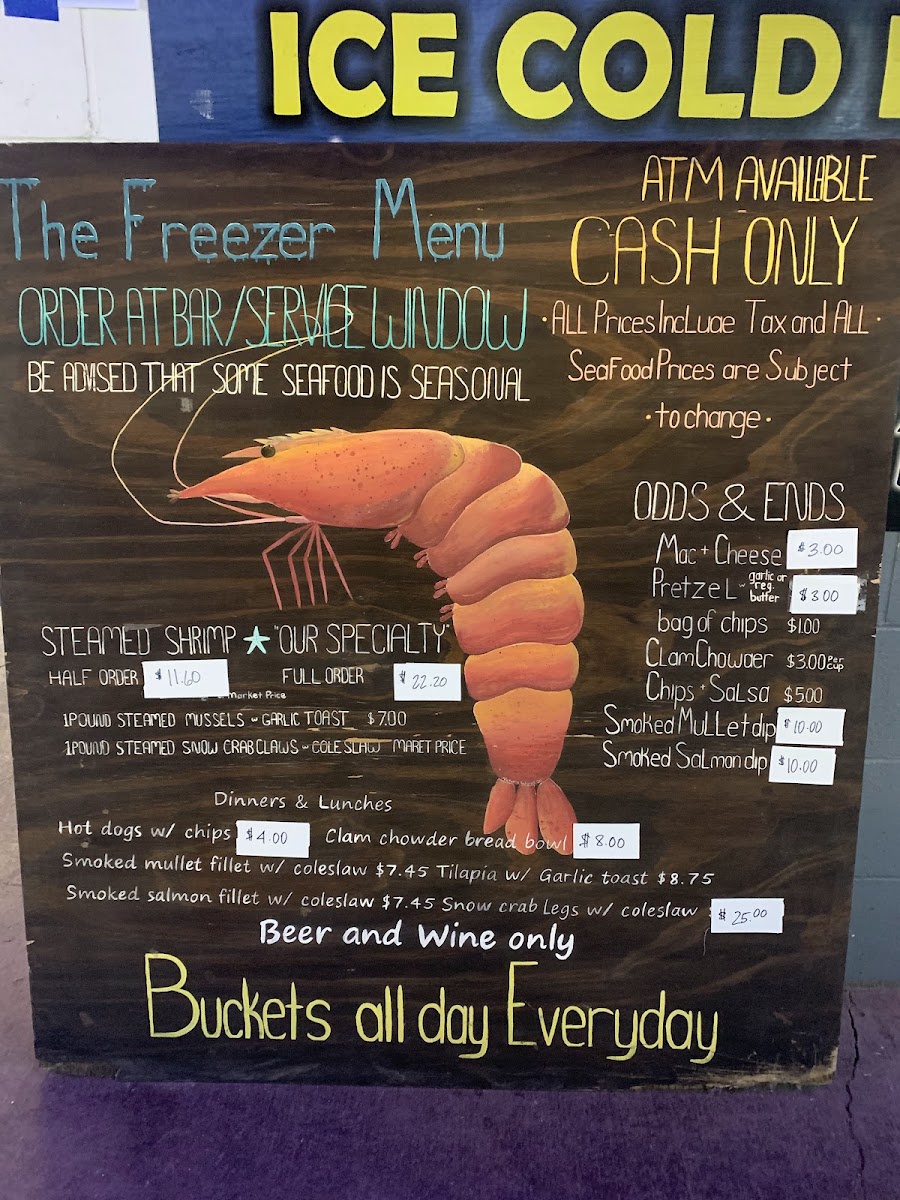 ICE COLD
The Freezer Menu
ORDER AT BAR/SERVICE WINDOW
BE ADVISED THAT SOME SEAFOOD IS SEASONAL
ATM AVAILABLE
CASH ONLY
·ALL Prices IncLude Tax and ALL·
SeaFood Prices are Subject
·to change·
ODDS & ENDS
Mac + Cheese $3.00
PretzeL - garlic or reg. butter $3.00
bag of chips $1.00
CLam Chowder $3.00 per cup
Chips + SaLsa $5.00
Smoked MuLLet dip $10.00
Smoked SaLmon dip $10.00
STEAMED SHRIMP ★ "OUR SPECIALTY"
HALF ORDER $11.60 FULL ORDER $22.20
Market Price
1 POUND STEAMED MUSSELS - GARLIC TOAST $7.00
1 POUND STEAMED SNOW CRAB CLAWS - COLE SLAW MARET PRICE
Dinners & Lunches
Hot dogs w/ chips $4.00 Clam chowder bread bowl $8.00
Smoked mullet fillet w/ coleslaw $7.45 Tilapia w/ Garlic toast $8.75
Smoked salmon fillet w/ coleslaw $7.45 Snow crab Legs w/ coleslaw $25.00
Beer and Wine only
Buckets all day Everyday